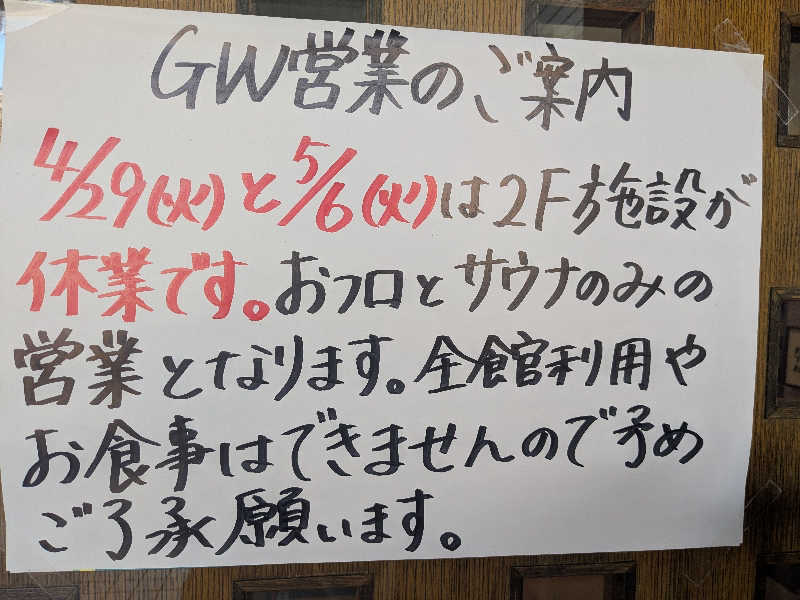 GW営業のご案内
4/29(火)と5/6(火)は2F施設が
休業です。おフロとサウナのみの
営業となります。全館利用や
お食事はできませんので予め
ご了承願います。